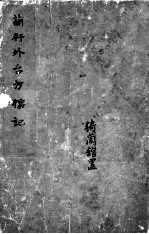 蘭軒外台方標記
椅蘭館置